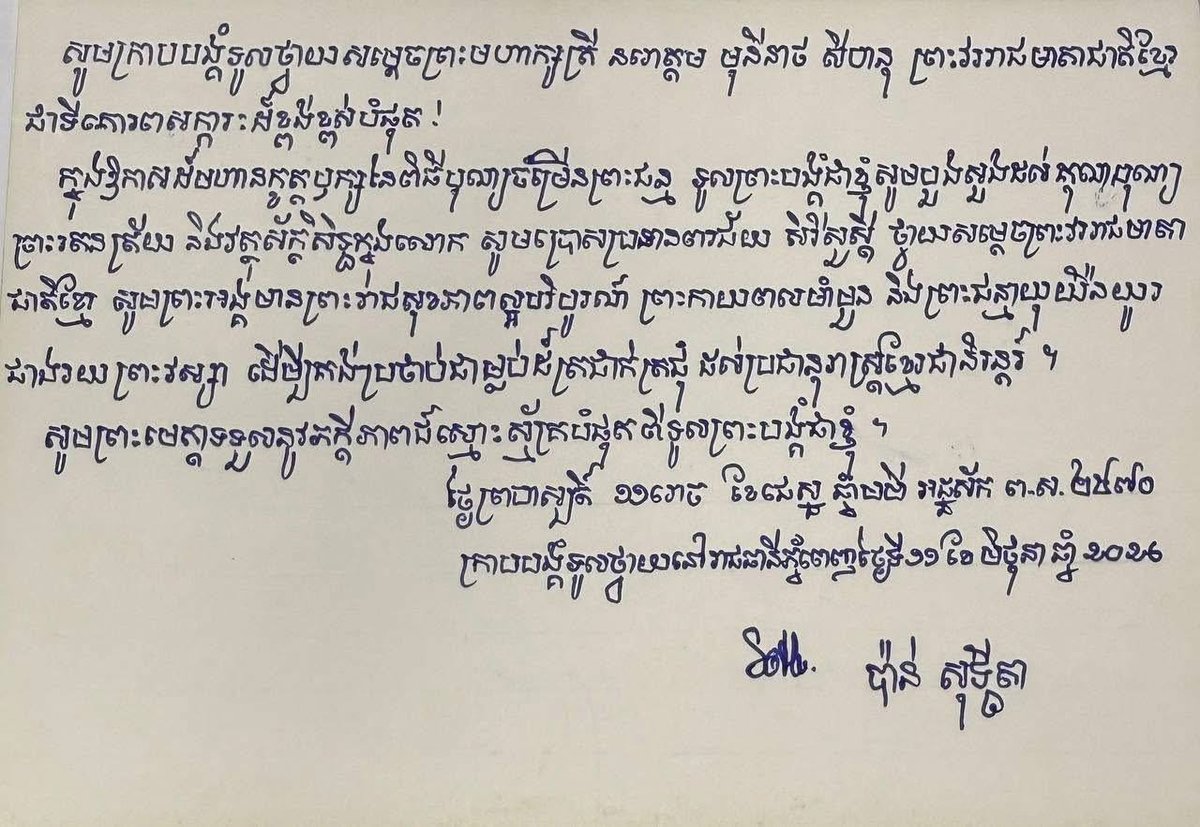 សូមក្រាបបង្គំទូលថ្វាយសម្តេចព្រះមហាក្សត្រី នរោត្តម មុនីនាថ សីហនុ ព្រះវររាជមាតាជាតិខ្មែរ
ជាទីគោរពសក្ការៈដ៏ខ្ពង់ខ្ពស់បំផុត!
ក្នុងឱកាសដ៏មហានក្ខត្តឫក្សនៃពិធីបុណ្យចម្រើនព្រះជន្ម ទូលព្រះបង្គំជាខ្ញុំសូមបួងសួងដល់គុណបុណ្យ
ព្រះរតនត្រ័យ និងវត្ថុស័ក្តិសិទ្ធក្នុងលោក សូមប្រោសប្រទានពរជ័យ សិរីសួស្តី ថ្វាយសម្តេចព្រះវររាជមាតា
ជាតិខ្មែរ សូមព្រះអង្គមានព្រះរាជសុខភាពល្អបរិបូរណ៍ ព្រះកាយពលមាំមួន និងព្រះជន្មាយុយឺនយូរ
ជាងរយព្រះវស្សា ដើម្បីគង់ប្រថាប់ជាម្លប់ដ៏ត្រជាក់ត្រជុំ ដល់ប្រជានុរាស្ត្រខ្មែរជានិរន្តរ៍ ។
សូមព្រះមេត្តាទទួលនូវភក្តីភាពដ៏ស្មោះស្ម័គ្របំផុតពីទូលព្រះបង្គំជាខ្ញុំ ។
ថ្ងៃព្រហស្បតិ៍ ១១រោច ខែជេស្ឋ ឆ្នាំមមី អដ្ឋស័ក ព.ស.២៥៧០
ក្រាបបង្គំទូលថ្វាយនៅរាជធានីភ្នំពេញថ្ងៃទី១១ ខែ មិថុនា ឆ្នាំ ២០២៦
ប៉ាន់ សុទ្ធីតា